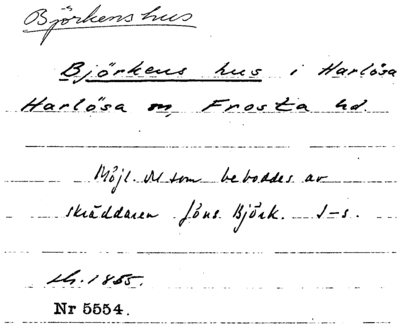 Björkens hus
Björkens hus i Harlösa
Harlösa sn, Frosta hd.
Möjl. dl som beboddes av
skräddaren Jöns Björk. I-s.
sk. 1855.
Nr 5554.